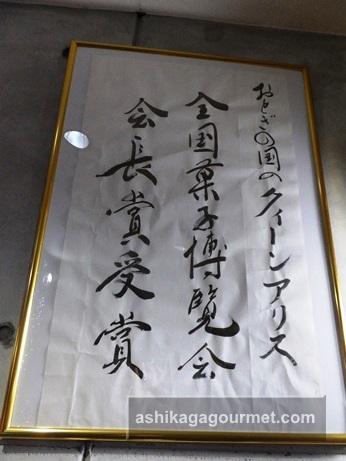 おとぎの国のクィーンアリス
全国菓子博覧会
会長賞受賞
ashikagagourmet.com